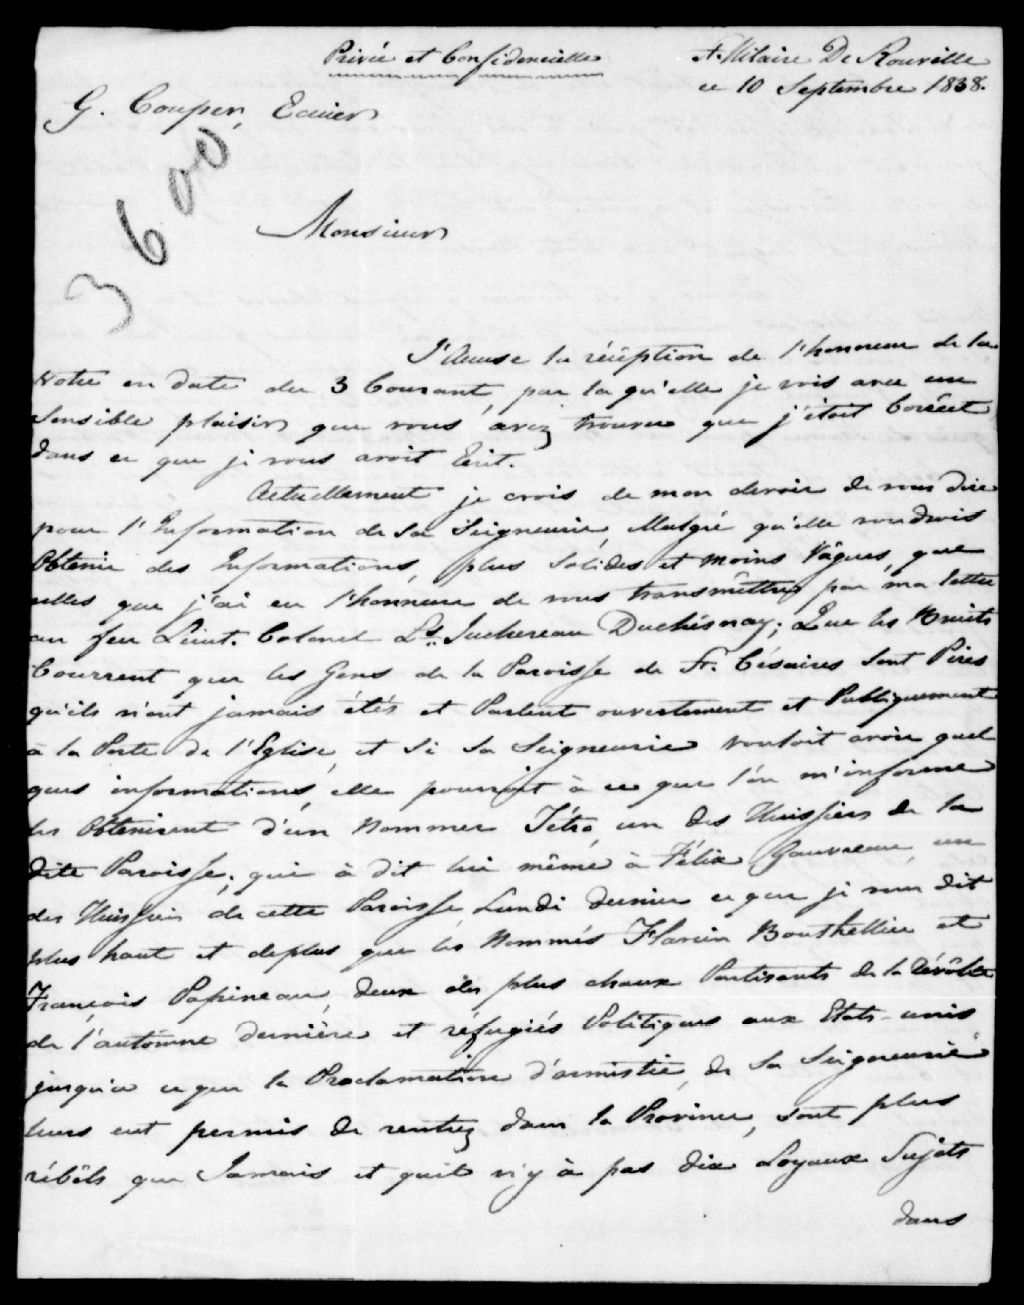 Privée et Confidencielle
St. Hilaire De Rouville
ce 10 Septembre 1838.
G. Couper, Ecuier
3600
Monsieur
J'Accuse la réception de l'honneur de la
Votre en date du 3 Courant, par la qu'elle je vois avec un
Sensible plaisir que vous avez trouvé que j'étoit Corèect
dans ce que je vous avoit Ecrit.
Actuellement je crois de mon devoir de vous dire
pour l'Information de Sa Seigneurie, Malgré qu'elle voudrois
Obtenir des Informations, plus Solides et moins Vâgues, que
celles que j'ai eu l'honneur de vous transmêttre par ma lettre
au feu Lieut. Colonel Ls. Juchereau Duchésnay; Que les Bruits
Courrent que les Gens de la Paroisse de St. Césaires Sont Pires
qu'ils n'ont jamais étés et Parlent ouvertement et Publiquement
à la Porte de l'Eglise, et Si Sa Seigneurie vouloit avoir quel
ques informations, elle pourroit à ce que l'ón m'informe
les Obtenirent d'un Nommer Tétro, un des Huissiers de la
dite Paroisse; qui à dit lui même à Félix Gauvreau, un
des Huissiers de cette Paroisse Lundi dernier ce que je vous dit
plus haut et deplus que les Nommés Flavien Bouthellier et
François Papineau, deux des plus chaux Partisants de la Révôlte
de l'autômne dernière et réfugiés Politiques aux Etats-unis
jusqu'a ce que la Proclamation d'amistie, de Sa Seigneurie
leurs eut permis de rentrez dans la Province, sont plus
rébèls que Jamais et quil n'y à pas dix Loyaux Sujèts
dans